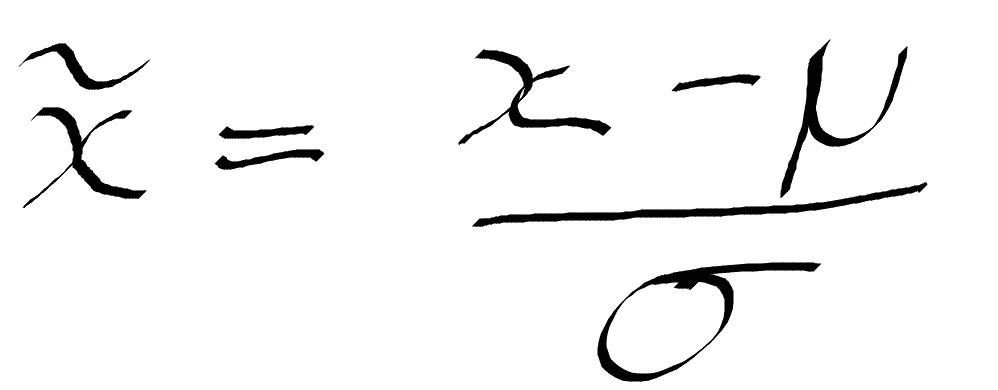 x̃ = (x - μ) / σ